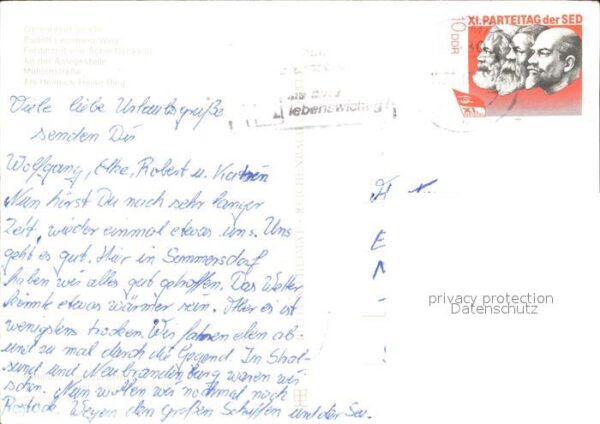 XI. PARTEITAG der SED
10 DDR
Ferdinand-von-Schill-Denkmal
An der Anlegestelle
Mühlenstraße
Am Heinrich-Heine-Ring
lebenswichtig!
Viele liebe Urlaubsgrüße
senden Dir
Wolfgang, Elke, Robert u. Katrin
Nun hörst Du nach sehr langer
Zeit, wieder einmal etwas uns. Uns
geht es gut. Hier in Sommersdorf
haben wir alles gut getroffen. Das Wetter
könnte etwas wärmer sein. Aber es ist
wenigstens trocken. Wir fahren eben ab
und zu mal durch die Gegend. In Stral-
sund und Neubrandenburg waren wir
schon. Nun wollen wir nochmal nach
Rostock. Wegen den großen Schiffen und der See.
privacy protection
Datenschutz